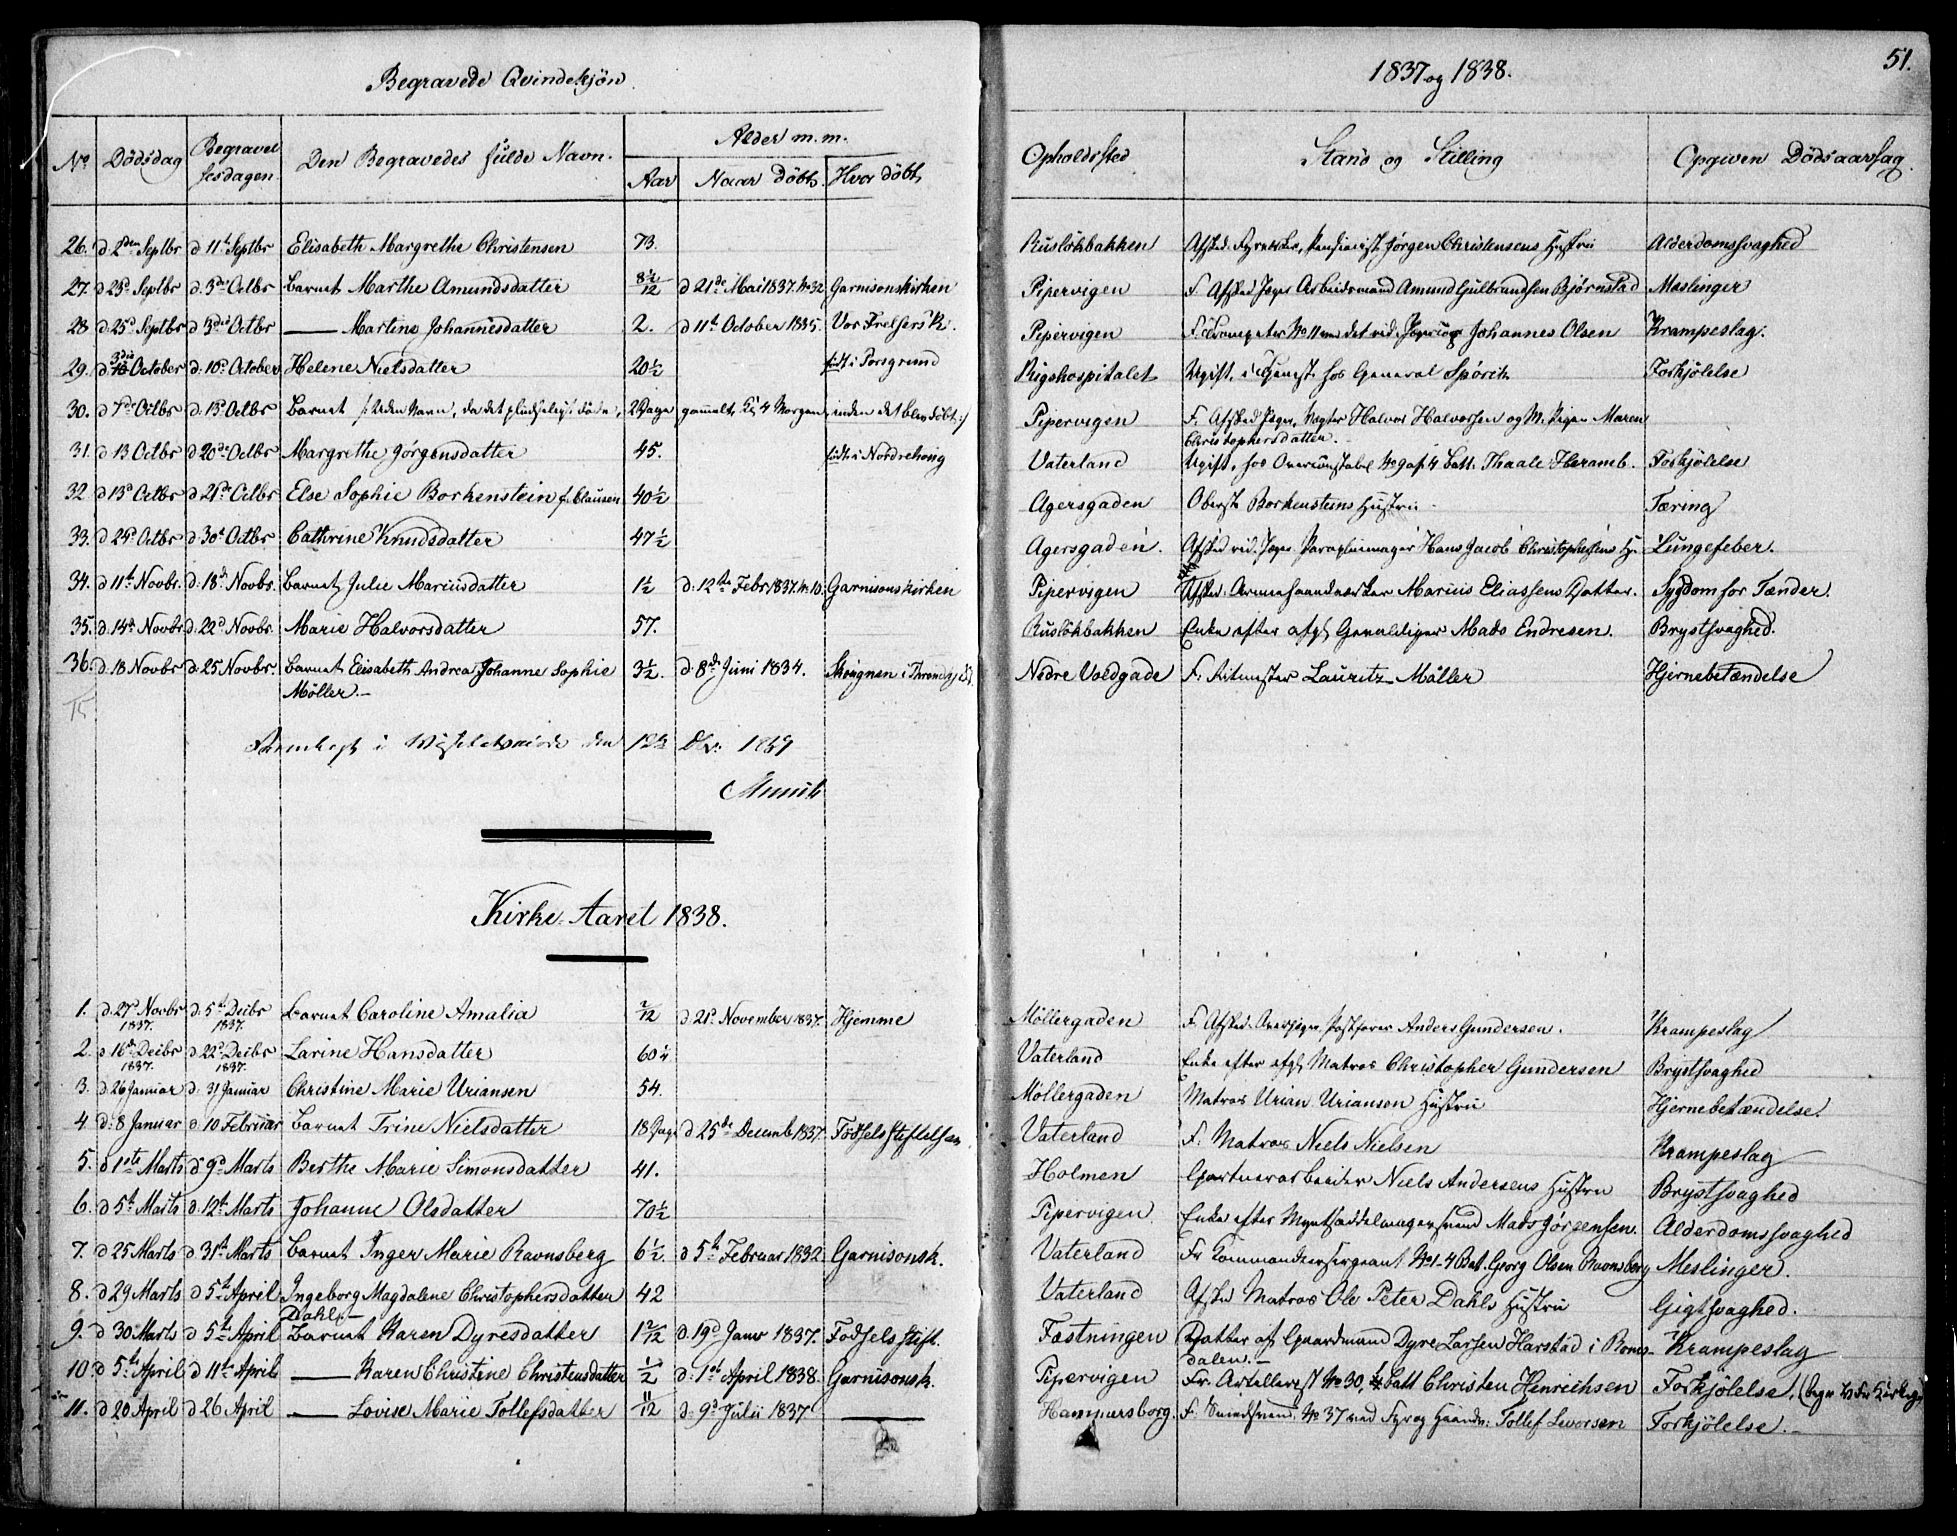 Begravede Qvindekjön.
1837 og 1838.
51.
No Dödsdag Begravelsesdagen Den Begravedes fulde Navn. Alder m. m. Aar Naar döbt. Hvor döbt Opholdssted Stand og Stilling Opgiven Dödsaarsag.
26. d 2den Septbr d 11te Septbr Elisabeth Margrethe Christensen 73. Ruslökbakken Pensionist Jørgen Christensens Hustru Alderdomssvaghed
27. d 23d Septbr d 3die Octbr Barnet Marthe Amundsdatter 8½/12 d 21de Mai 1837. No 32 Garnisonskirken Pipervigen F. Afsked Jæger Arbeidsmand Amund Gulbrandsen Bjørnstad Meslinger
28 d 25d Septbr d 3die Octbr —— Martine Johannesdatter 2. d 11te October 1835. Vor Frelsers K. Pipervigen F. Trompeter No 11 Johannes Olsen Krampeslag.
29. d. 3die October d. 10de October Helene Nielsdatter 20½ födt i Porsgrund Rigshospitalet Ugift, i Tjeneste hos General Spörck Forkjölelse
30. d 7de Octbr d 13de Octbr Barnet /: Uden Navn, da det pludseligt döde, 2 Dage gammelt, Kl 4 Morgen, inden det blev döbt :/ Pipervigen F. Afsked Jæger, Vægter Halvor Halvorsen og M. Pigen Maren
Christophersdatter.
31. d 13 Octbr d 20de Octbr Margrethe Jörgensdatter 45. födt i Norderhoug Vaterland Ugift, hos Overconstabel No 9 af 4 Batt. Thaale Haramb. Forkjölelse
32 d 13d Octbr d 21de Octbr Else Sophie Borkenstein f. Clausen 40½ Agersgaden Oberst Borkensteins Hustru Tæring
33. d 24d Octbr d 30te Octbr Cathrine Knudsdatter 47½ Agersgaden. Afsked rid. Jæger Parapluimager Hans Jacob Christophersens H. Lungefeber.
34. d 11te Novbr. d. 18de Novbr. Barnet Julie Mariusdatter 1½ d. 12te Febr 1837. No 10. Garnisonskirken Pipervigen Afsked. Marius Eliassens Datter. Sygdom for Tænder.
35. d. 14de Novbr d. 22d Novbr. Marie Halvorsdatter 57. Ruslökbakken Enke efter afg. Gevaldiger Mads Endresen. Brystsvaghed.
36. d. 18 Novbr d. 25 Novbr. Barnet Elisabeth Andrea Johanne Sophie 3½. d. 8de Juni 1834. Skougnen i Throndhj St. Nedre Voldgade F. Ritmester Lauritz Möller Hjernebetændelse
Möller.—
Munch
Kirke-Aaret 1838.
1. d. 27d Novbr 1837. d. 5te Decbr 1837. Barnet Caroline Amalia 2/12 d. 21d November 1837. Hjemme Möllergaden F. Afsked. Overjæger, Postförer Anders Gundersen. Krampeslag
2. d 16de Decbr 1837. d. 22d Decbr 1837. Larine Hansdatter 60¼ Vaterland Enke efter afg. Matros Christopher Gundersen Brystsvaghed
3. d 26 Januar d. 31 Januar Christine Marie Uriansen 54. Möllergaden Matros Urian Urianson Hustru Hjernebetændelse.
4 d. 8 Januar d. 10 Februar Barnet Trine Nielsdatter 18 Dage d 25de Decemb 1837. Födselsstiftelsen Vaterland F. Matros Niels Nielsen Krampeslag
5. d 1ste Marts d 9d Marts Berthe Marie Simonsdatter 41. Holmen Gartnerarbeider Niels Andersens Hustru Brystsvaghed
6. d 5te Marts d. 12te Marts Johanne Olsdatter 70½ Pipervigen Enke efter Myntsaddelmagersvend Mads Jørgensen. Alderdomssvaghed
7. d 25 Marts d 31te Marts Barnet Inger Marie Ravnsberg 6½. d 5te Februar 1832. Garnisonsk. Vaterland Fr Kommandeersergeant No 1 - 4 Bat. Georg Olsen Ravnsberg Meslinger.
8. d 29 Marts d 5te April Ingeborg Magdalene Christophersdatter 42 Vaterland Afsked Matros Ole Peter Dahls Hustru Gigtsvaghed.
Dahl.—
9. d 30 Marts d 5te April Barnet Karen Dyresdatter 1 2/12 d. 19d Janv 1837. Födselsstift. Fæstningen Datter af Gaardmand Dyre Larsen Harstad i Roms- Krampeslag
dalen.—
10. d 5te April d 11te April —— Karen Christine Christensdatter ½ d. 1ste April 1838. Garnisonsk. Pipervigen Fr. Artillerist No 30, Batt Christen Henrichsen Forkjölelse.
11. d 20 April d 26 April —— Lovise Marie Tollefsdatter 11/12 d. 9d Julii 1837 —— Hammersborg. F. Smedsvend. No 37 ved Tollef Levorsen Forkjölelse.—